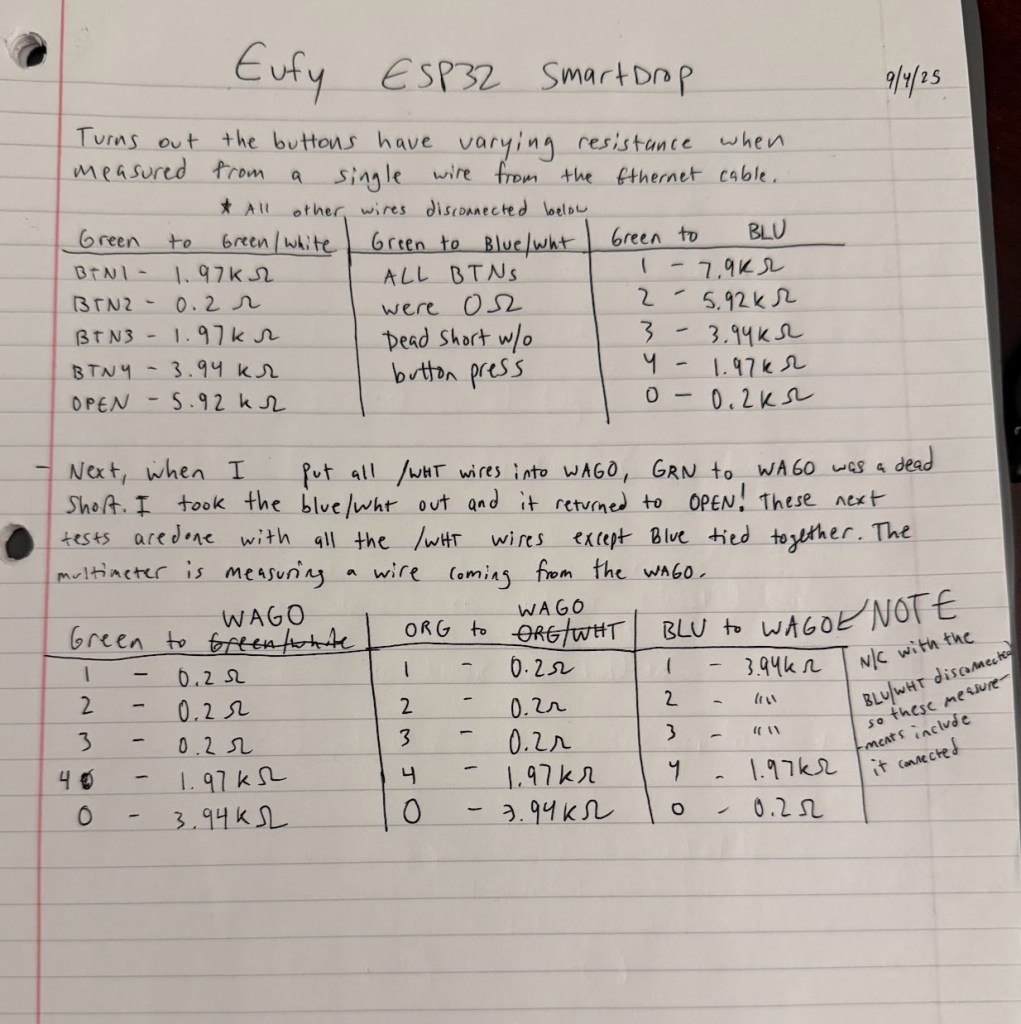 Eufy ESP32 SmartDrop
9/4/25
Turns out the buttons have varying resistance when
measured from a single wire from the Ethernet cable.
* All other wires disconnected below
Green to Green/white | Green to Blue/wht | Green to BLU
BTN1 - 1.97K Ω | ALL BTNs | 1 - 7.9K Ω
BTN2 - 0.2 Ω | were 0Ω | 2 - 5.92K Ω
BTN3 - 1.97K Ω | Dead short w/o | 3 - 3.94K Ω
BTN4 - 3.94 KΩ | button press | 4 - 1.97K Ω
OPEN - 5.92 KΩ | 0 - 0.2K Ω
- Next, when I put all /WHT wires into WAGO, GRN to WAGO was a dead
short. I took the blue/wht out and it returned to OPEN! These next
tests are done with all the /WHT wires except Blue tied together. The
multimeter is measuring a wire coming from the WAGO.
Green to Green/white WAGO | ORG to ORG/WHT WAGO | BLU to WAGO ← NOTE
1 - 0.2 Ω | 1 - 0.2Ω | 1 - 3.94K Ω
2 - 0.2 Ω | 2 - 0.2Ω | 2 - ""
3 - 0.2 Ω | 3 - 0.2Ω | 3 - ""
4 - 1.97KΩ | 4 - 1.97KΩ | 4 - 1.97KΩ
0 - 3.94KΩ | 0 - 3.94KΩ | 0 - 0.2Ω
N/C with the
BLU/WHT disconnected
so these measure-
ments include
it connected